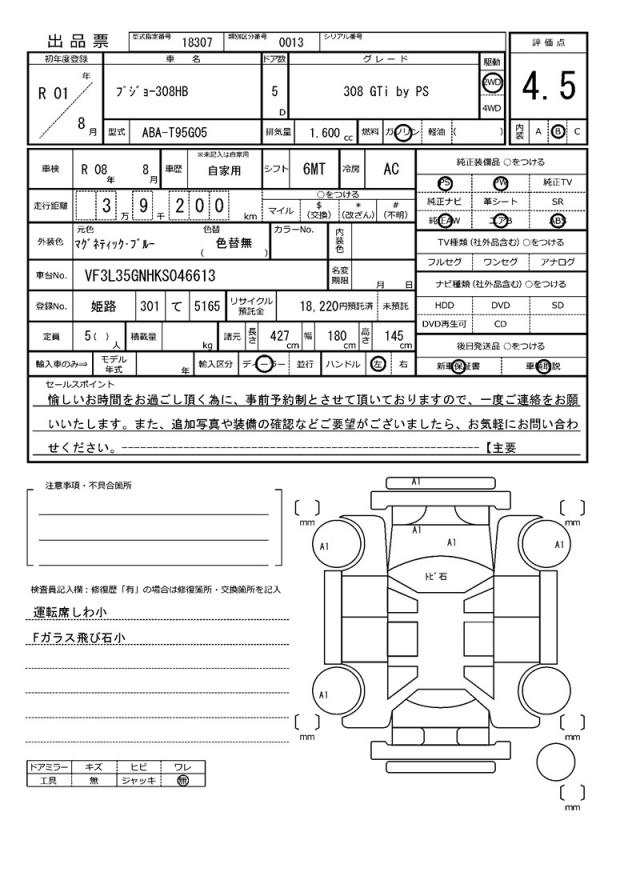 出品票 型式指定番号 18307 類別区分番号 0013 シリアル番号
評価点
4.5
内装 A B C
初年度登録 車名 ドア数 グレード 駆動
R 01 年 8 月
プジョー308HB 5 D 308 GTi by PS 2WD 4WD
型式 ABA-T95G05 排気量 1.600 cc 燃料 ガソリン 軽油 ( )
車検 R 08 年 8 月 車歴 ※未記入は自家用 自家用 シフト 6MT 冷房 AC
走行距離 3 万 9 千 2 0 0 km
○をつける
マイル $ (交換) * (改ざん) # (不明)
外装色 元色 マグネティック・ブルー 色替 色替無 ( ) カラーNo. 内装色
車台No. VF3L35GNHKS046613 名変期限 月 日
登録No. 姫路 301 て 5165 リサイクル預託金 18,220円預託済 未預託
定員 5( ) 人 積載量 kg 諸元 長さ 427 cm 幅 180 cm 高さ 145 cm
輸入車のみ⇒ モデル年式 年 輸入区分 ディーラー 並行 ハンドル 左 右
純正装備品 ○をつける
PS PW 純正TV
純正ナビ 革シート SR
純正AW エアB ABS
TV種類 (社外品含む) ○をつける
フルセグ ワンセグ アナログ
ナビ種類 (社外品含む) ○をつける
HDD DVD SD
DVD再生可 CD
後日発送品 ○をつける
新車保証書 車輌取説
セールスポイント
愉しいお時間をお過ごし頂く為に、事前予約制とさせて頂いておりますので、一度ご連絡をお願
いいたします。また、追加写真や装備の確認などご要望がございましたら、お気軽にお問い合わ
せください。------------------------------------------------------【主要
注意事項・不具合箇所
検査員記入欄：修復歴「有」の場合は修復箇所・交換箇所を記入
運転席しわ小
Fガラス飛び石小
ドアミラー キズ ヒビ ワレ
工具 無 ジャッキ 無
A1
A1
A1
A1
A1
トビ石
A1
A1
mm
mm
mm
mm
mm